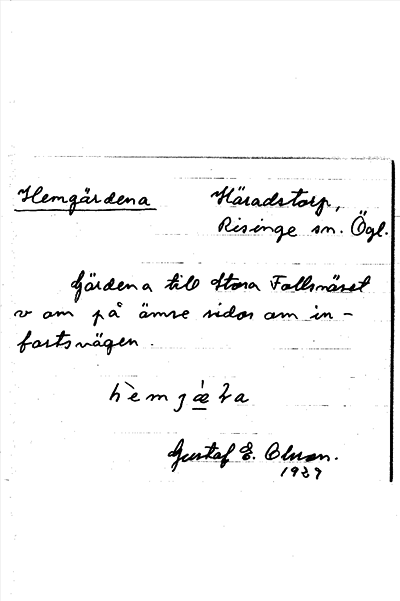 Hemgärdena Häradstorp,
Risinge sn. Ögl.
Gärdena till Stora Follsnäset
v om på ömse sidor om in-
fartsvägen.
Gustaf E. Olsson.
1927